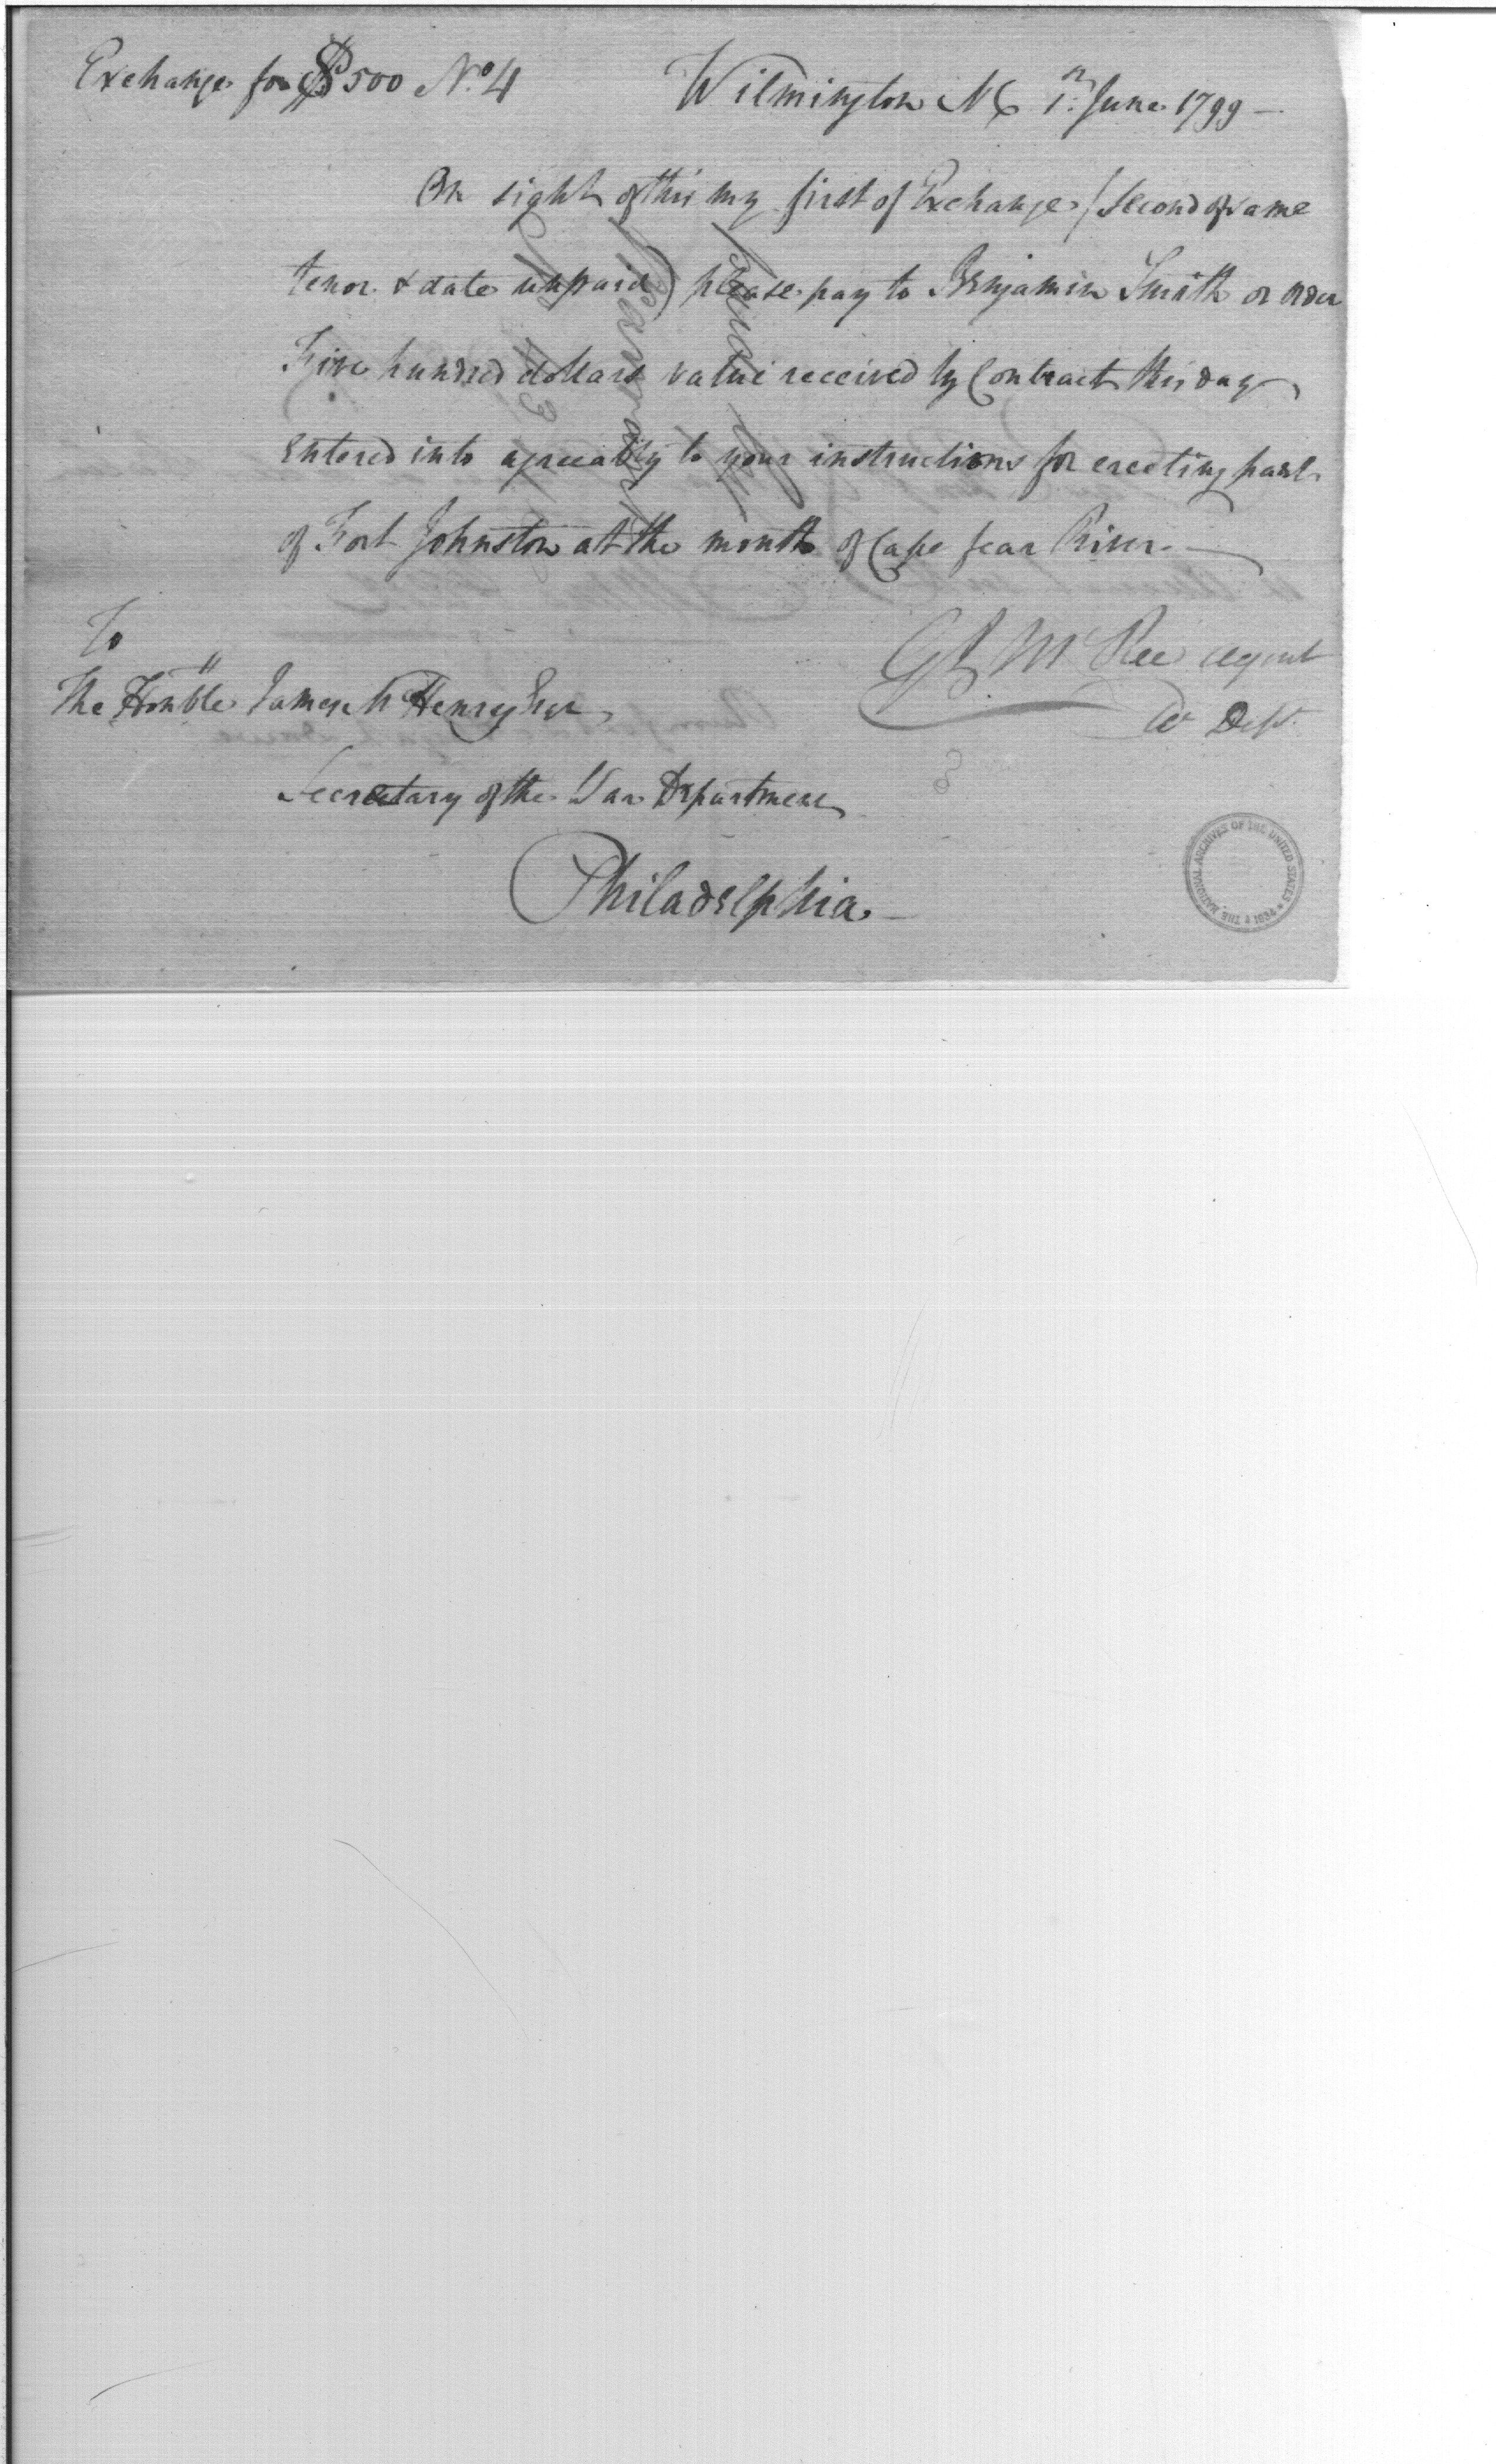 Exchange for $500 No. 4
Wilmington NC 1st June 1799 —
On sight of this my first of Exchange (second of same
tenor & date unpaid) please pay to Benjamin Smith or order
Five hundred dollars value received by Contract this day
entered into agreeably to your instructions for erecting part
of Fort Johnston at the mouth of Cape fear River —
G J McRee agent
W Dept.
To
The Honble James McHenry Esqr
Secretary of the War Department
Philadelphia —
THE NATIONAL ARCHIVES OF THE UNITED STATES ★ 1934 ★